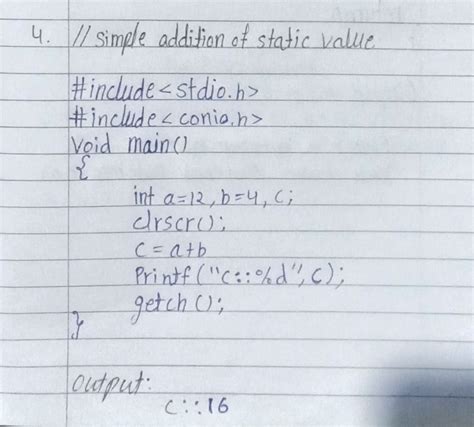 4. // simple addition of static value
#include<stdio.h>
#include<conio.h>
void main()
{
int a=12, b=4, c;
clrscr();
c = a+b
Printf("c::%d", c);
getch();
}
output:
c::16